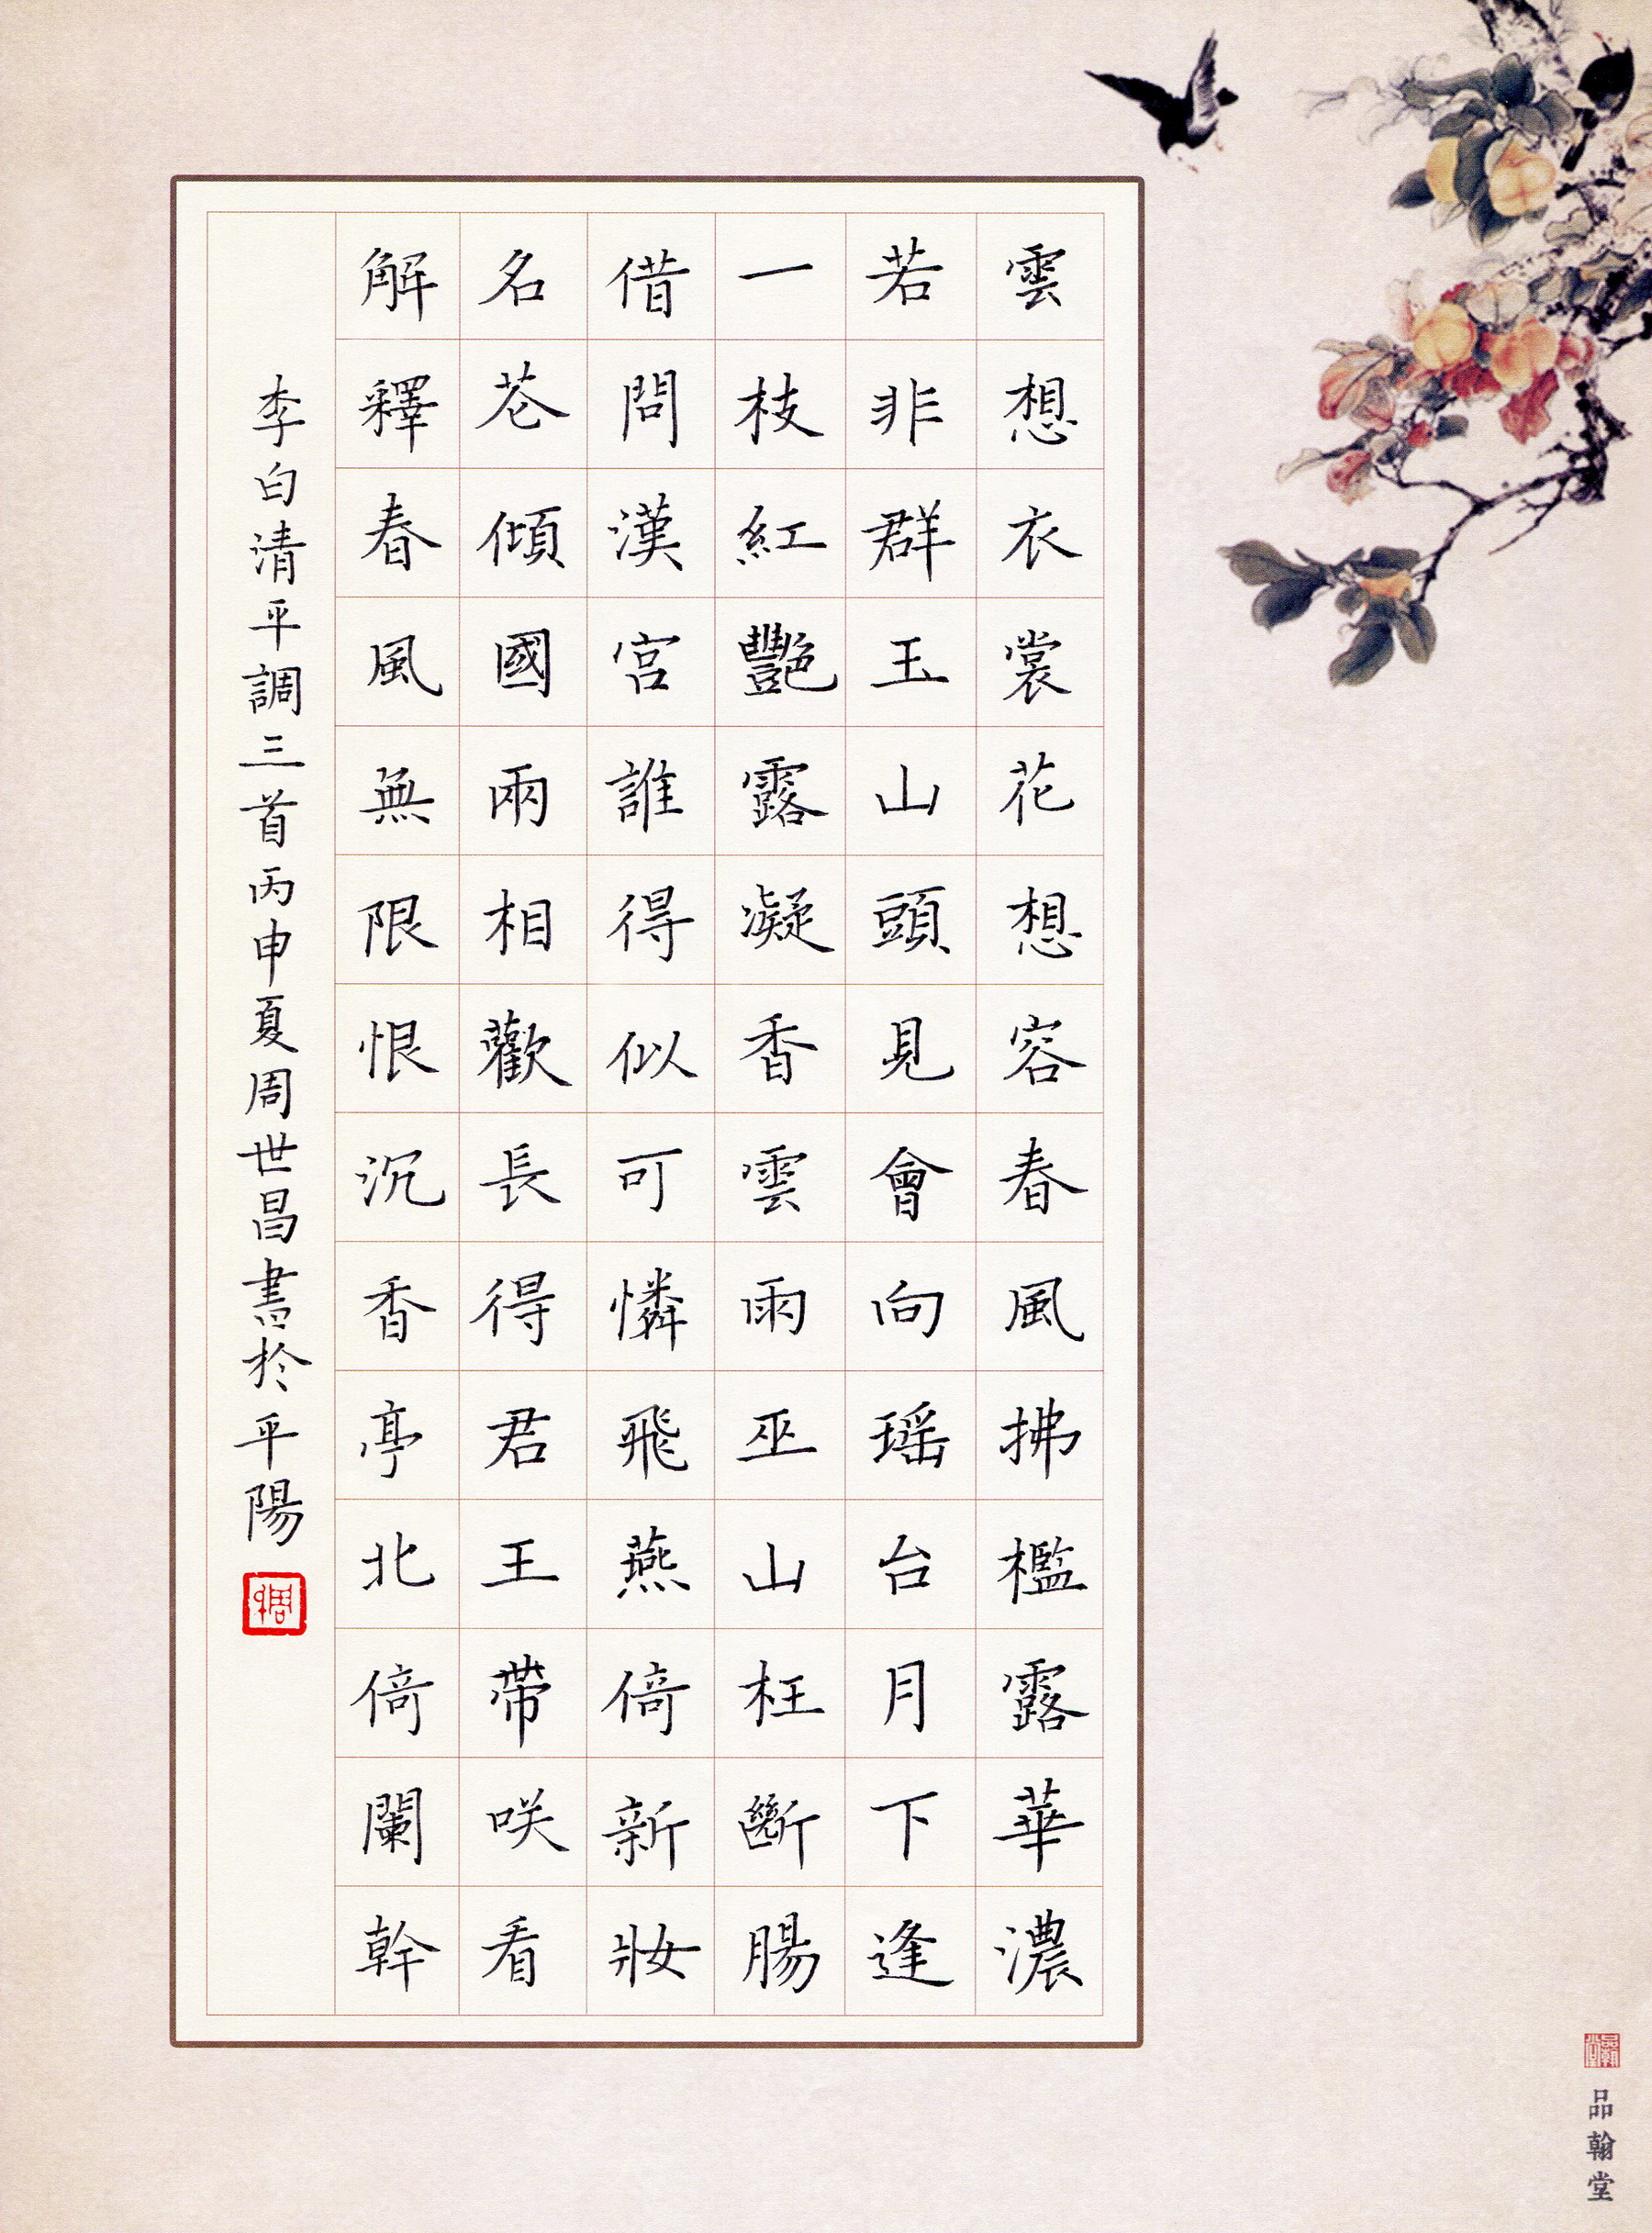 雲想衣裳花想容春風拂檻露華濃
若非群玉山頭見會向瑶台月下逢
一枝紅艷露凝香雲雨巫山枉斷腸
借問漢宮誰得似可憐飛燕倚新妝
名苍傾國兩相歡長得君王帶咲看
解釋春風無限恨沉香亭北倚闌幹
李白清平調三首丙申夏周世昌書於平陽
周
品翰堂
品翰堂